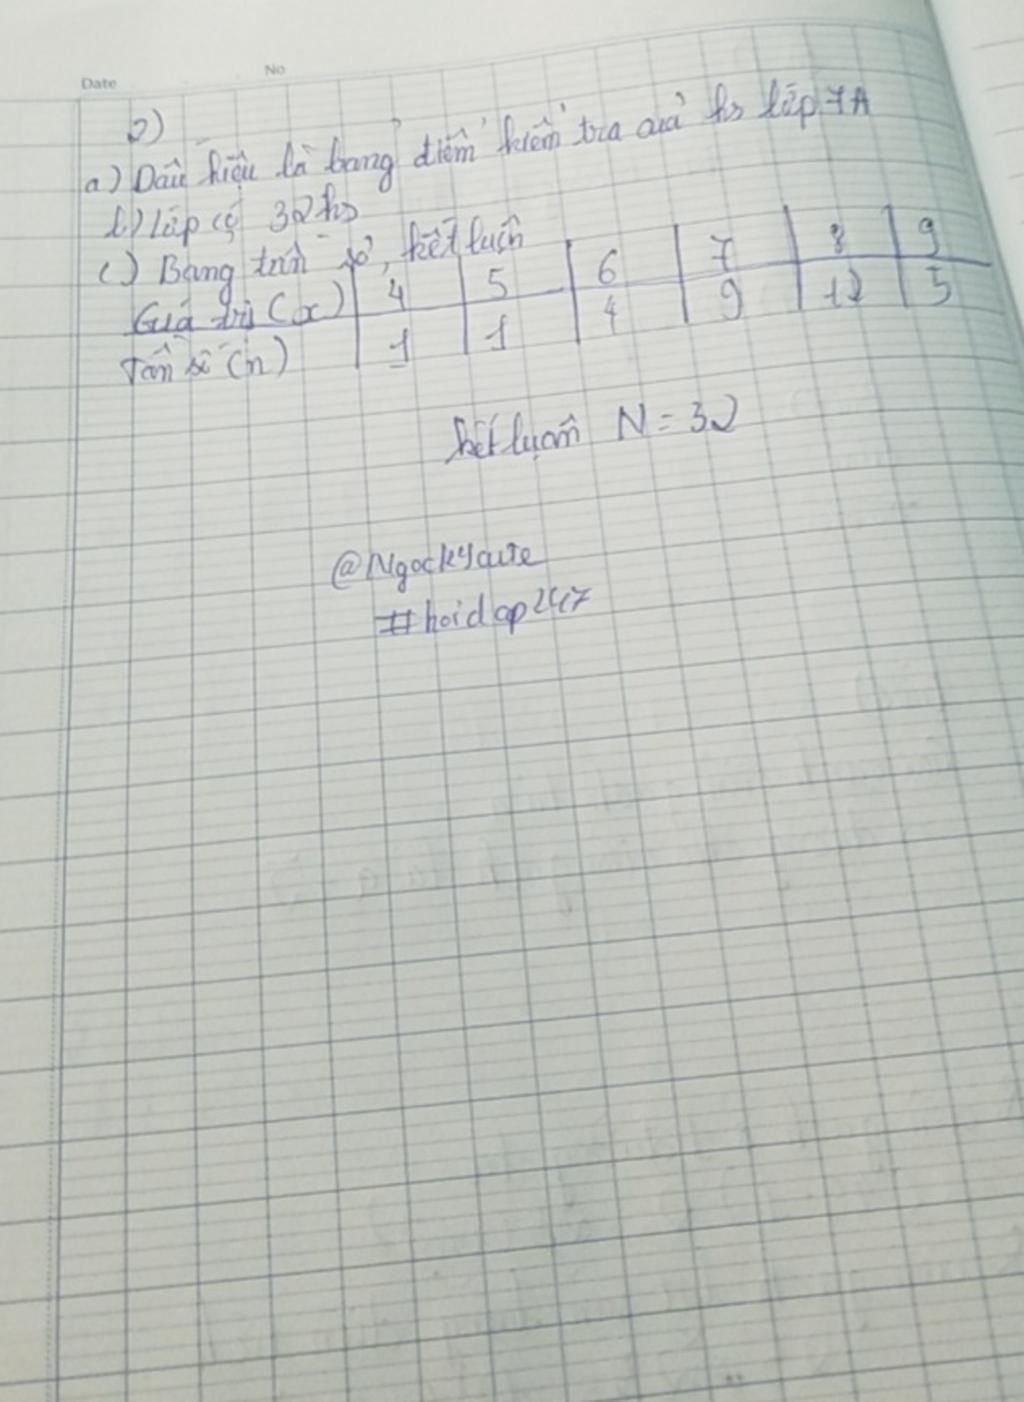 Date No
2)
a) Dấu hiệu là bảng điểm kiểm tra của hs lớp 7A
b) lớp có 32 hs
c) Bảng tần số, kết luận
Giá trị (x) 4 5 6 7 8 9
Tần số (n) 1 1 4 9 12 5
kết luận N = 32
@Ngockycute
#hoidap247